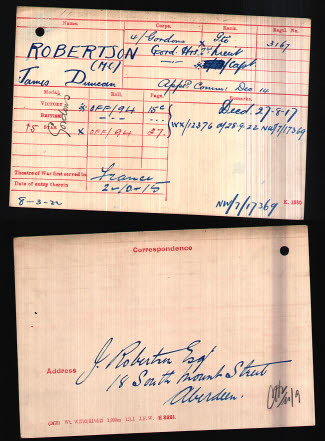 Name. Corps. Rank. Regtl. No.
ROBERTSON 4/Gordons Pte 3167
(MC) Gord. Hrs. Lieut
James Duncan A/Capt.
Appd. Commn. Dec 14
Medal. Roll. Page. Remarks.
VICTORY X OFF/194 15c Died. 27-8-17
BRITISH - do - - do -
15 STAR X OFF/194 27. NW/7/17369
Gordons
Theatre of War first served in France
Date of entry therein 2-10-15
8-3-22 NW/7/17369 K. 1380
Correspondence
Address J. Robertson Esqr
18 South Mount Street
Aberdeen.